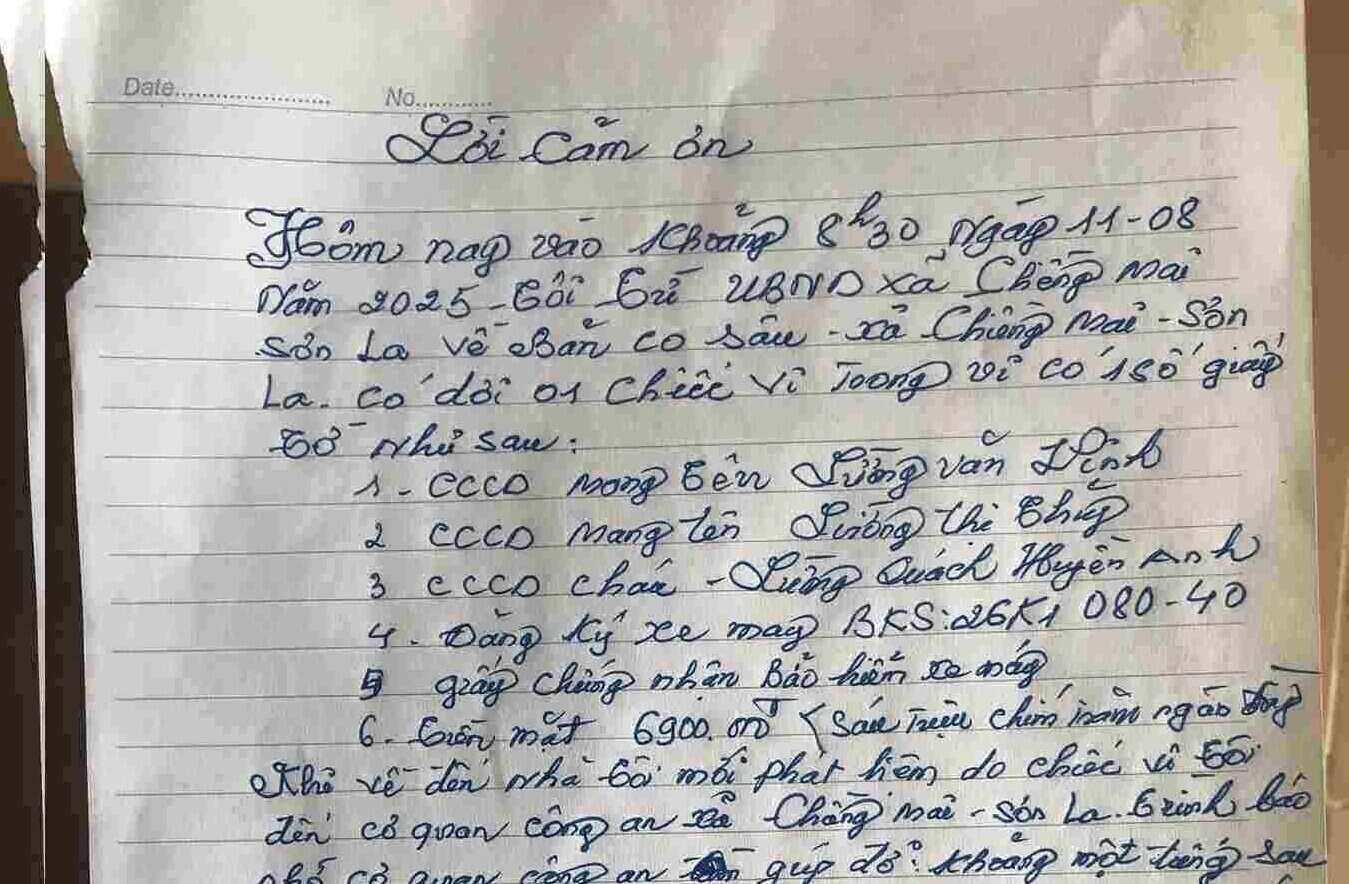 Date.................... No............
Lời Cảm ơn
Hôm nay vào khoảng 8h30 Ngày 11-08
Năm 2025 - tôi từ UBND xã Chiềng Mai
Sơn La về Bản Co Sâu - xã Chiềng Mai - Sơn
La. Có dơi 01 chiếc ví Trong ví có 1 số giấy
tờ như sau:
1 - CCCD mang tên Lường Văn Vĩnh
2 CCCD mang tên Lường thị thủy
3 CCCD cháu - Lường Quách Huyền Anh
4 - Đăng ký xe may BKS: 26K1 080-40
5 giấy chứng nhận Bảo hiểm xe máy
6 - tiền mặt 6900.000đ (Sáu triệu chín trăm ngàn đồng
Khi về đến nhà tôi mới phát hiện do chiếc ví tôi
đến cơ quan công an xã Chiềng Mai - Sơn La. trình báo
nhờ cơ quan công an giúp đỡ. khoảng một tiếng sau